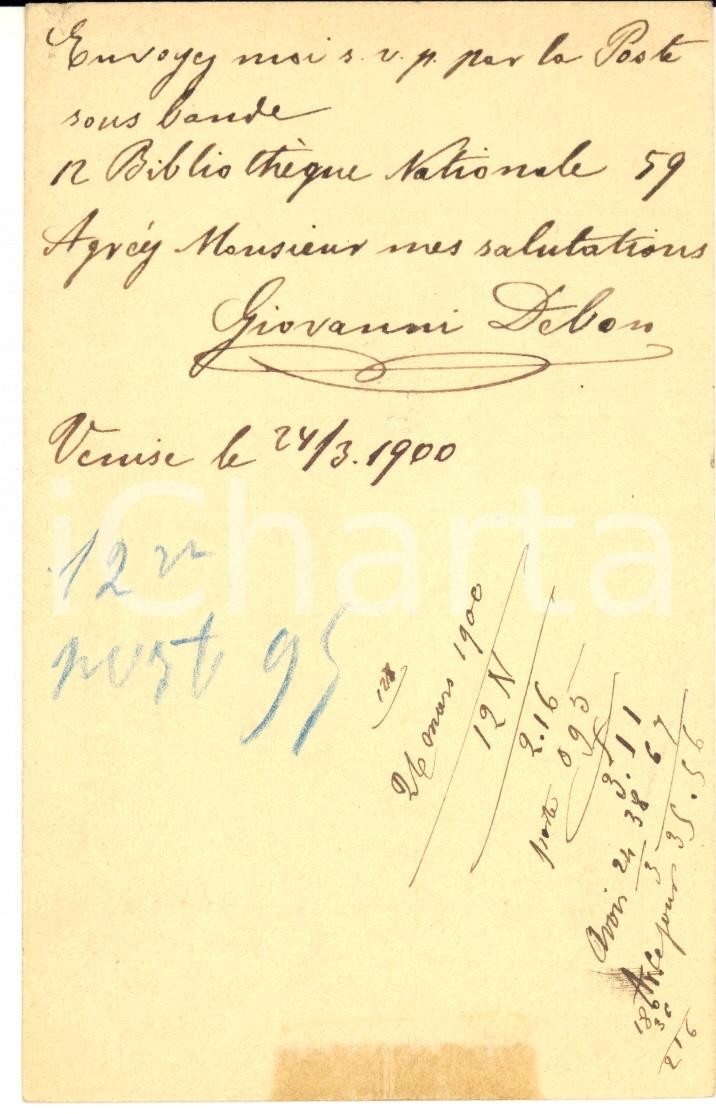 Envoyez moi s. v. p. par la Poste
sous bande
12 Bibliothèque Nationale 59
Agréez Monsieur mes salutations
Giovanni Debon
Venise le 24/3.1900
iCharta
12 n
post 95
26 mars 1900
12 N
2.16
poste 095
3.11
38 67
Avoir 24
3
Ce jour 35.56
186
30
216